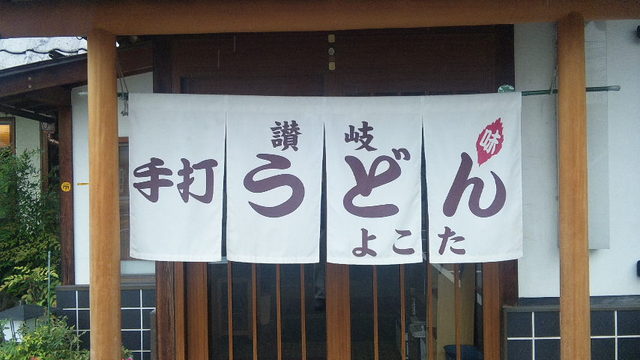 讃岐
手打うどん
味
よこた